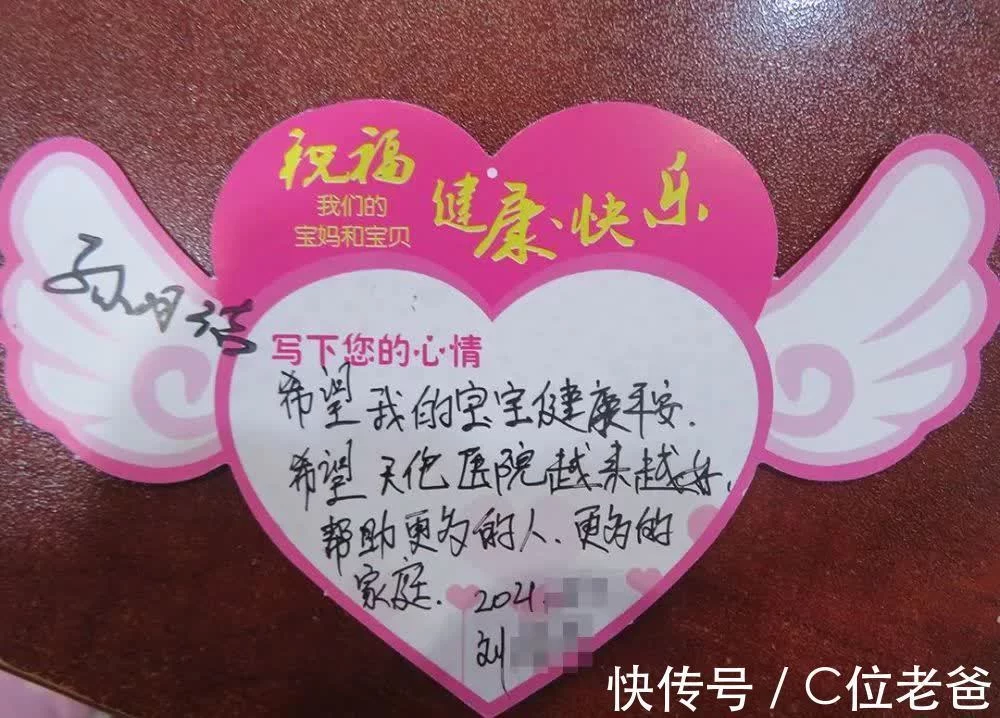 祝福
我们的
宝妈和宝贝
健康·快乐
孙月洁
写下您的心情
希望我的宝宝健康平安.
希望天伦医院越来越好,
帮助更多的人.更多的
家庭.
2021.
刘
快传号 / C位老爸